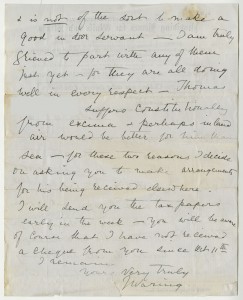 & is not of the sort to make a
good in door servant — I am truly
grieved to part with any of them
just yet — for they are all doing
well in every respect — Thomas
suffers Constitutionally
from & perhaps inland
air would be better for
sea — for these two reasons I decide
on asking you to make arrangements
for his being received elsewhere.
I will send you the tax papers
early in the week — you will be aware
of course that I have not received
a cheque from you since Oct 11th
I remain
Yours Very truly
J Waring